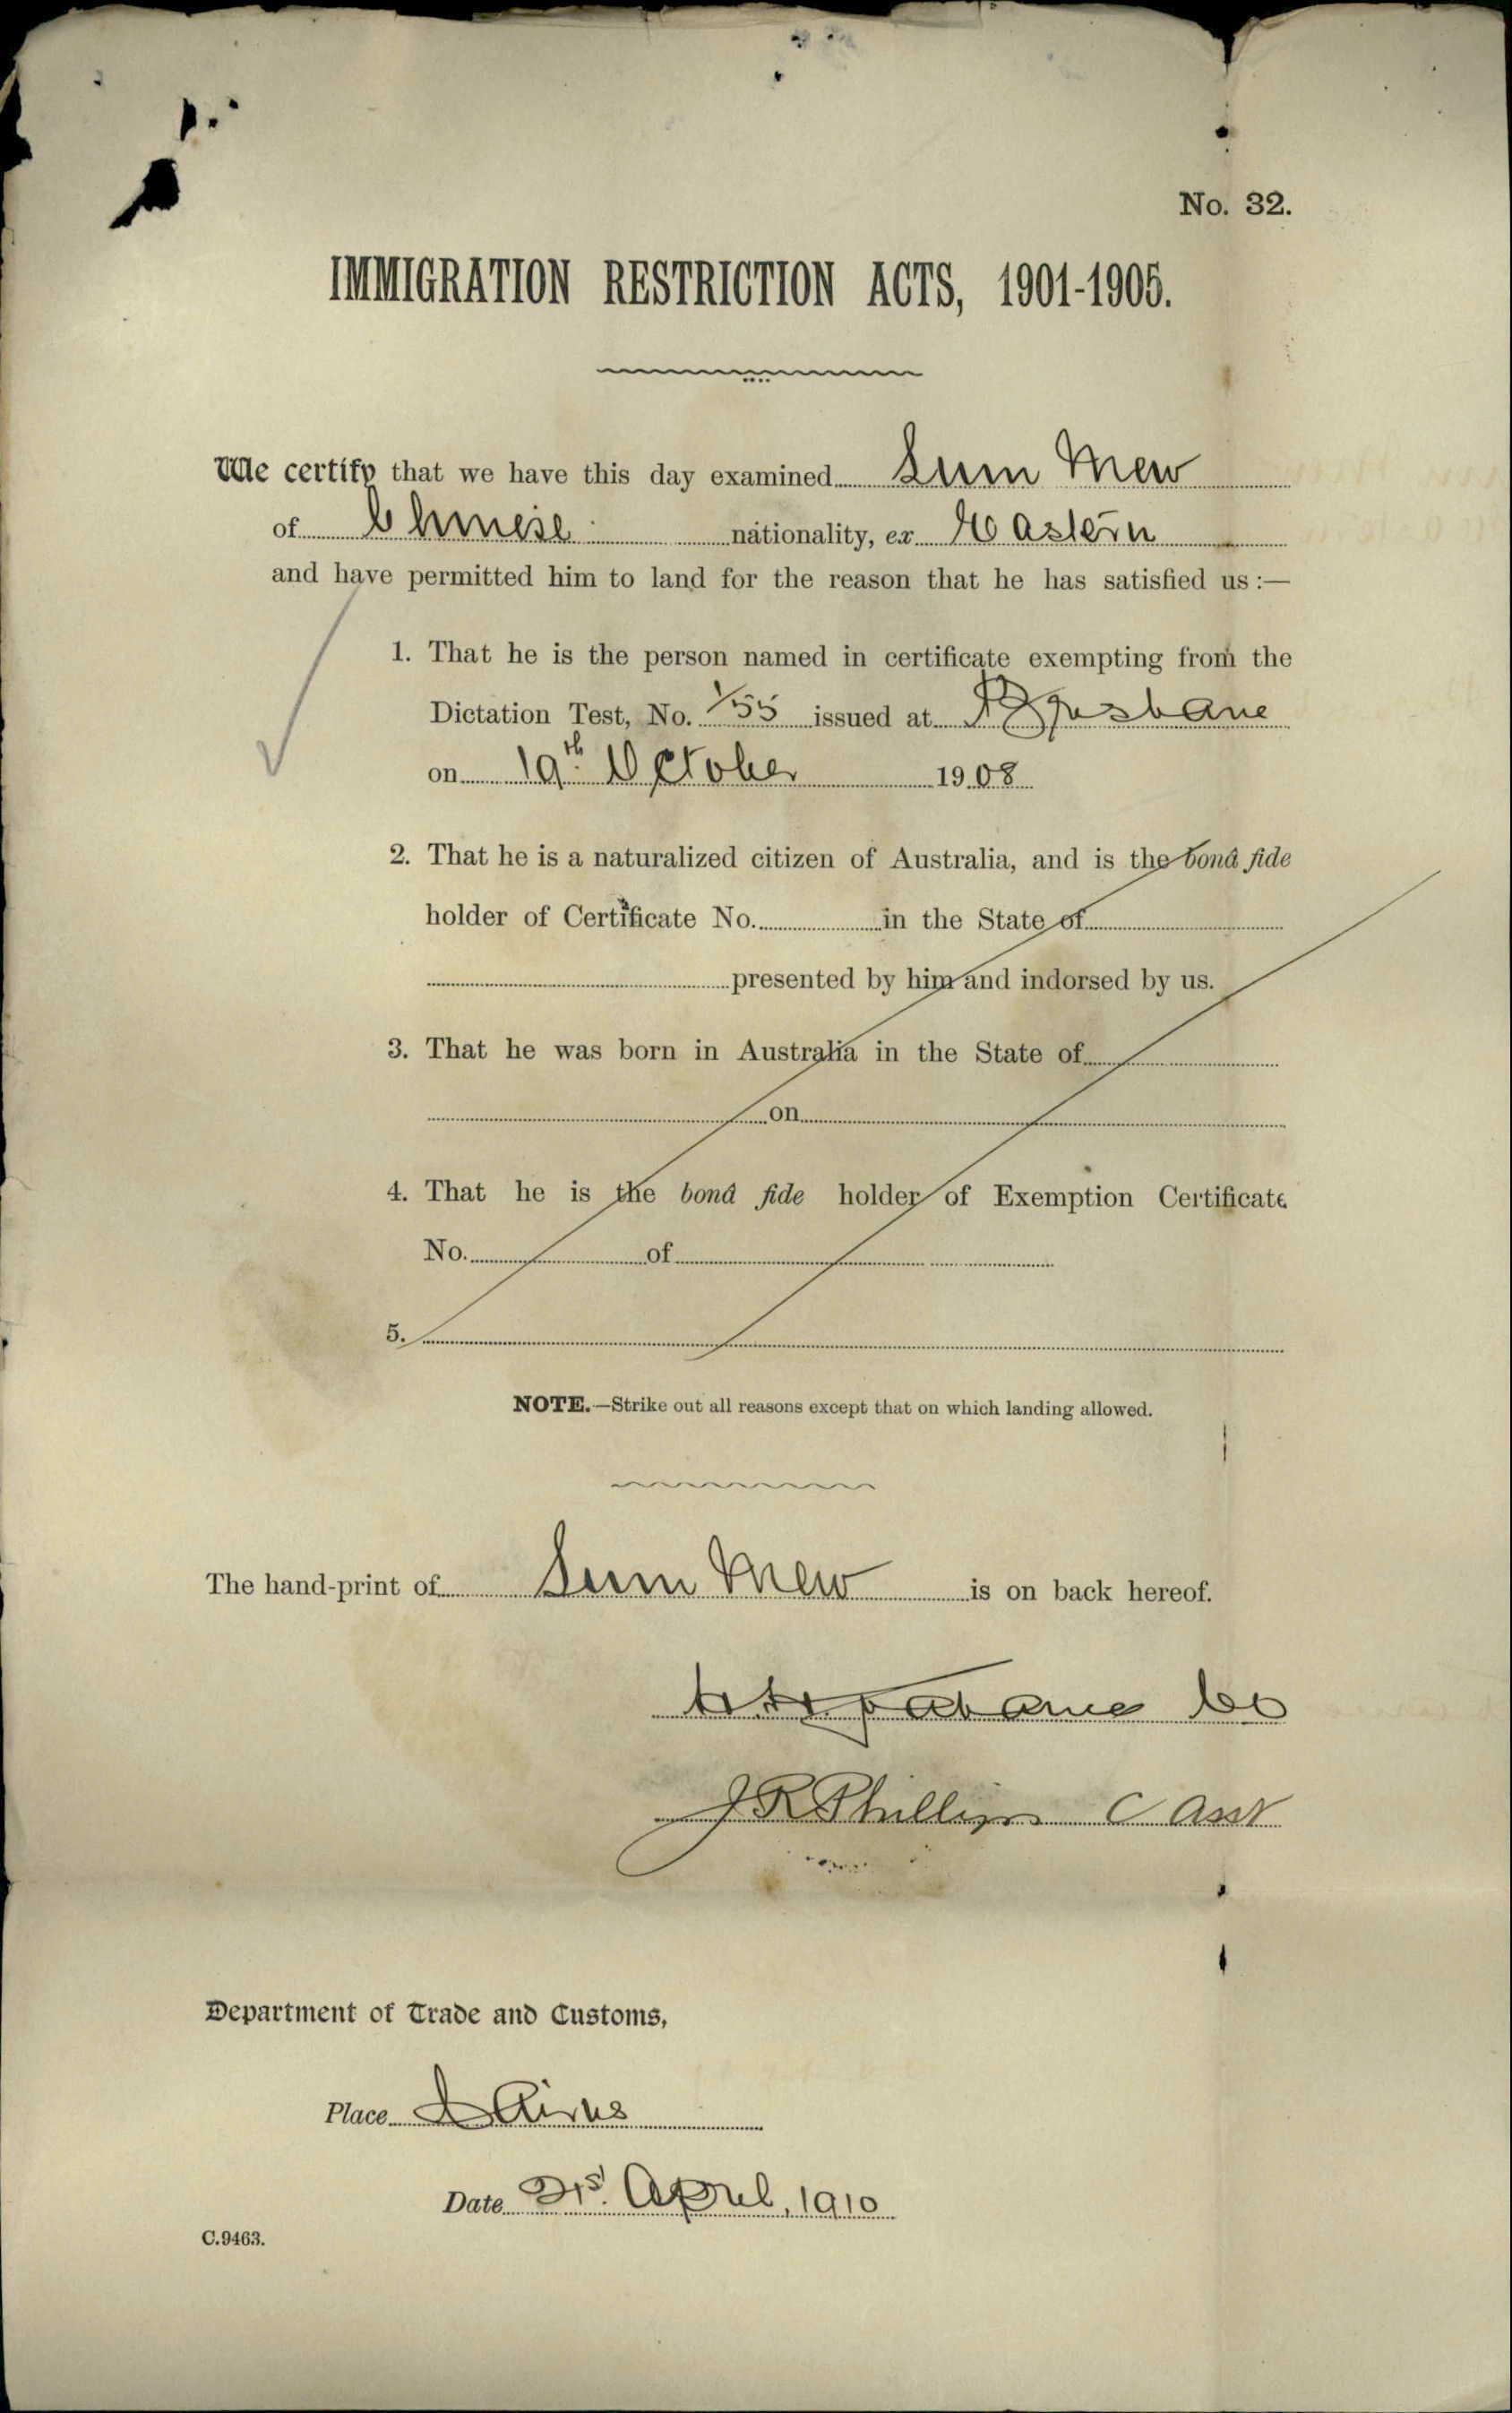 No. 32.
IMMIGRATION RESTRICTION ACTS, 1901-1905.
We certify that we have this day examined Sum Mew
of Chinese nationality, ex Eastern
and have permitted him to land for the reason that he has satisfied us :—
1. That he is the person named in certificate exempting from the
Dictation Test, No. issued at Brisbane
on 19th October 1908
2. That he is a naturalized citizen of Australia, and is the bonâ fide
holder of Certificate No. in the State of
presented by him and indorsed by us.
3. That he was born in Australia in the State of
on
4. That he is the bonâ fide holder of Exemption Certificate
No. of
5.
NOTE.—Strike out all reasons except that on which landing allowed.
The hand-print of Sum Mew is on back hereof.
J R Phillips C Asst
Department of Trade and Customs,
Place Cairns
Date 21st. April, 1910
C.9463.